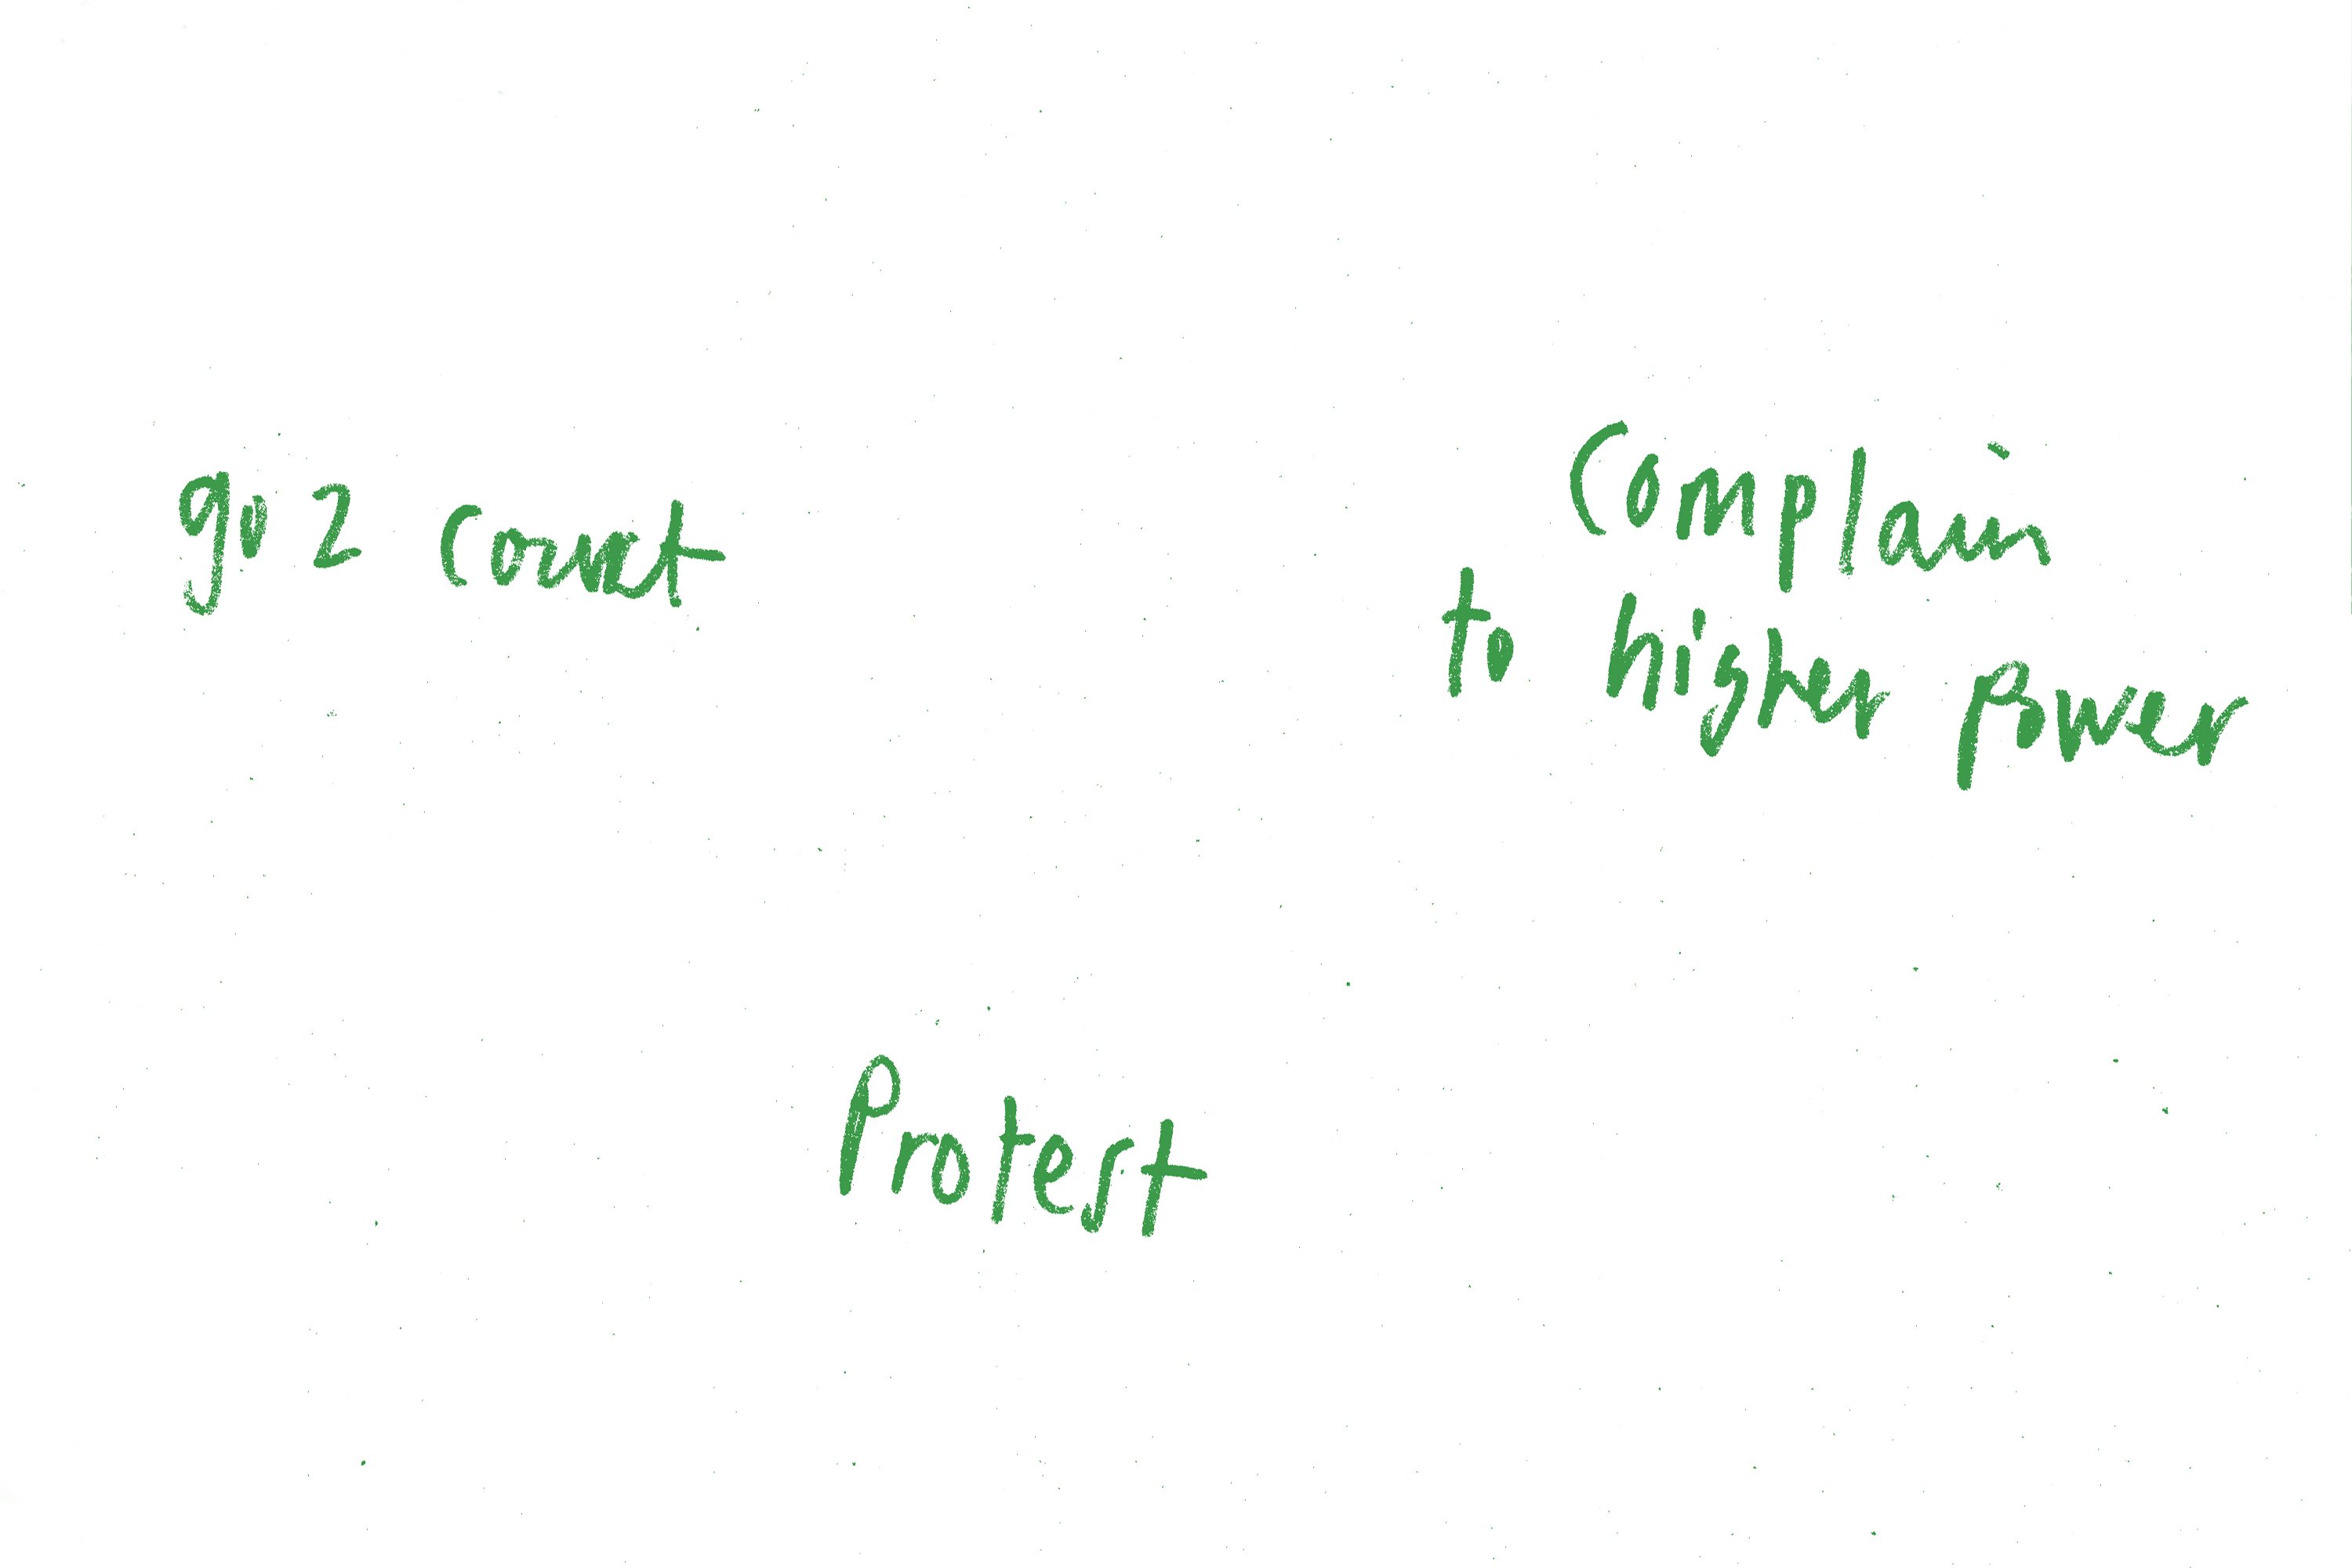 go 2 court
Complain
to higher power
Protest